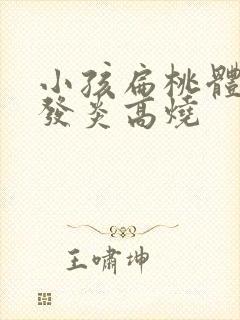 小孩扁桃體
發炎高燒
王嘯坤